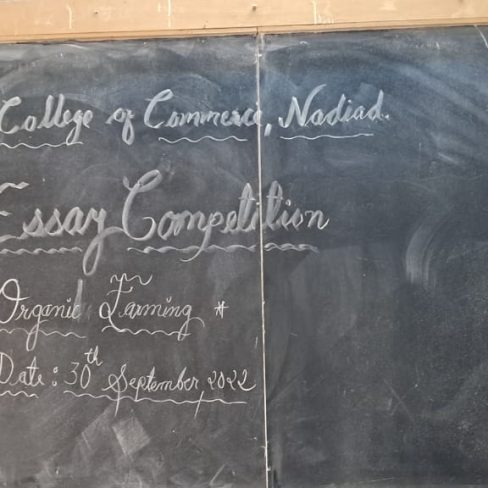 College of Commerce, Nadiad.
Essay Competition
Organic Farming *
Date: 30th September 2022